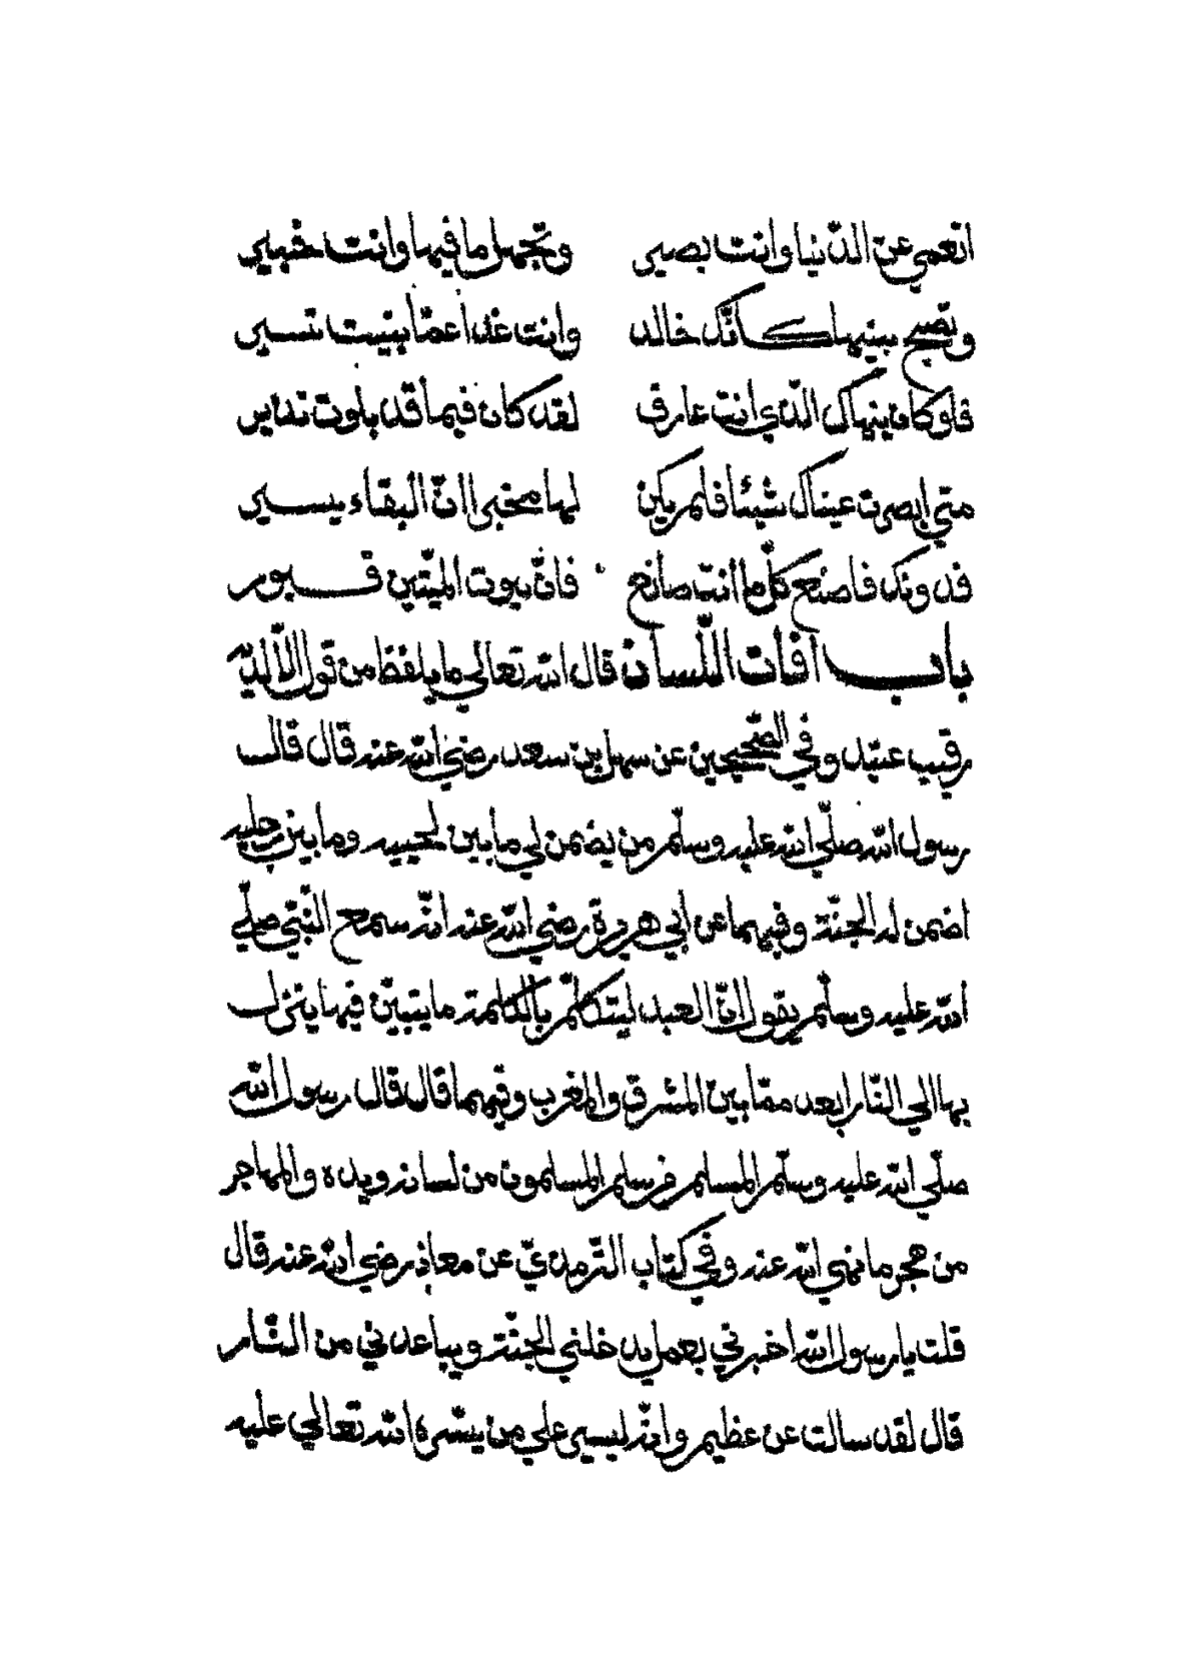 اتعمي عن الدّنيا وانت بصير وتجهل ما فيها وانت خبير
وتصبح تبنيها كانّك خالد وانت غدا عمّا بنيت تسير
فلو كان ينهاك الّذي انت عارف لقد كان فيما قد بلوت نذير
متي ابصرت عيناك شيئا فلم يكن لها مخبرا انّ البقاء يسير
فدونك فاصنع كلّ ما انت صانع فانّ بيوت الميّتين قبور
باب افات اللّسان قال الله تعالي ما يلفظ من قول الّا لديه
رقيب عتيد وفي الصّحيحين عن سهل بن سعد رضي الله عنه قال قال
رسول الله صلّي الله عليه وسلّم من يضمن لي ما بين لحييه وما بين رجليه
اضمن له الجنّة وفيهما عن ابي هريرة رضي الله عنه انّه سمع النّبيّ صلّي
الله عليه وسلّم يقول انّ العبد ليتكلّم بالكلمة ما يتبيّن فيها ينزل
بها الي النّار ابعد ممّا بين المشرق والمغرب وفيهما قال قال رسول الله
صلّي الله عليه وسلّم المسلم من سلم المسلمون من لسانه ويده والمهاجر
من هجر ما نهي الله عنه وفي كتاب التّرمذيّ عن معاذ رضي الله عنه قال
قلت يا رسول الله اخبرني بعمل يدخلني الجنّة ويباعدني من النّار
قال لقد سالت عن عظيم وانّه ليسير علي من يسّره الله تعالي عليه